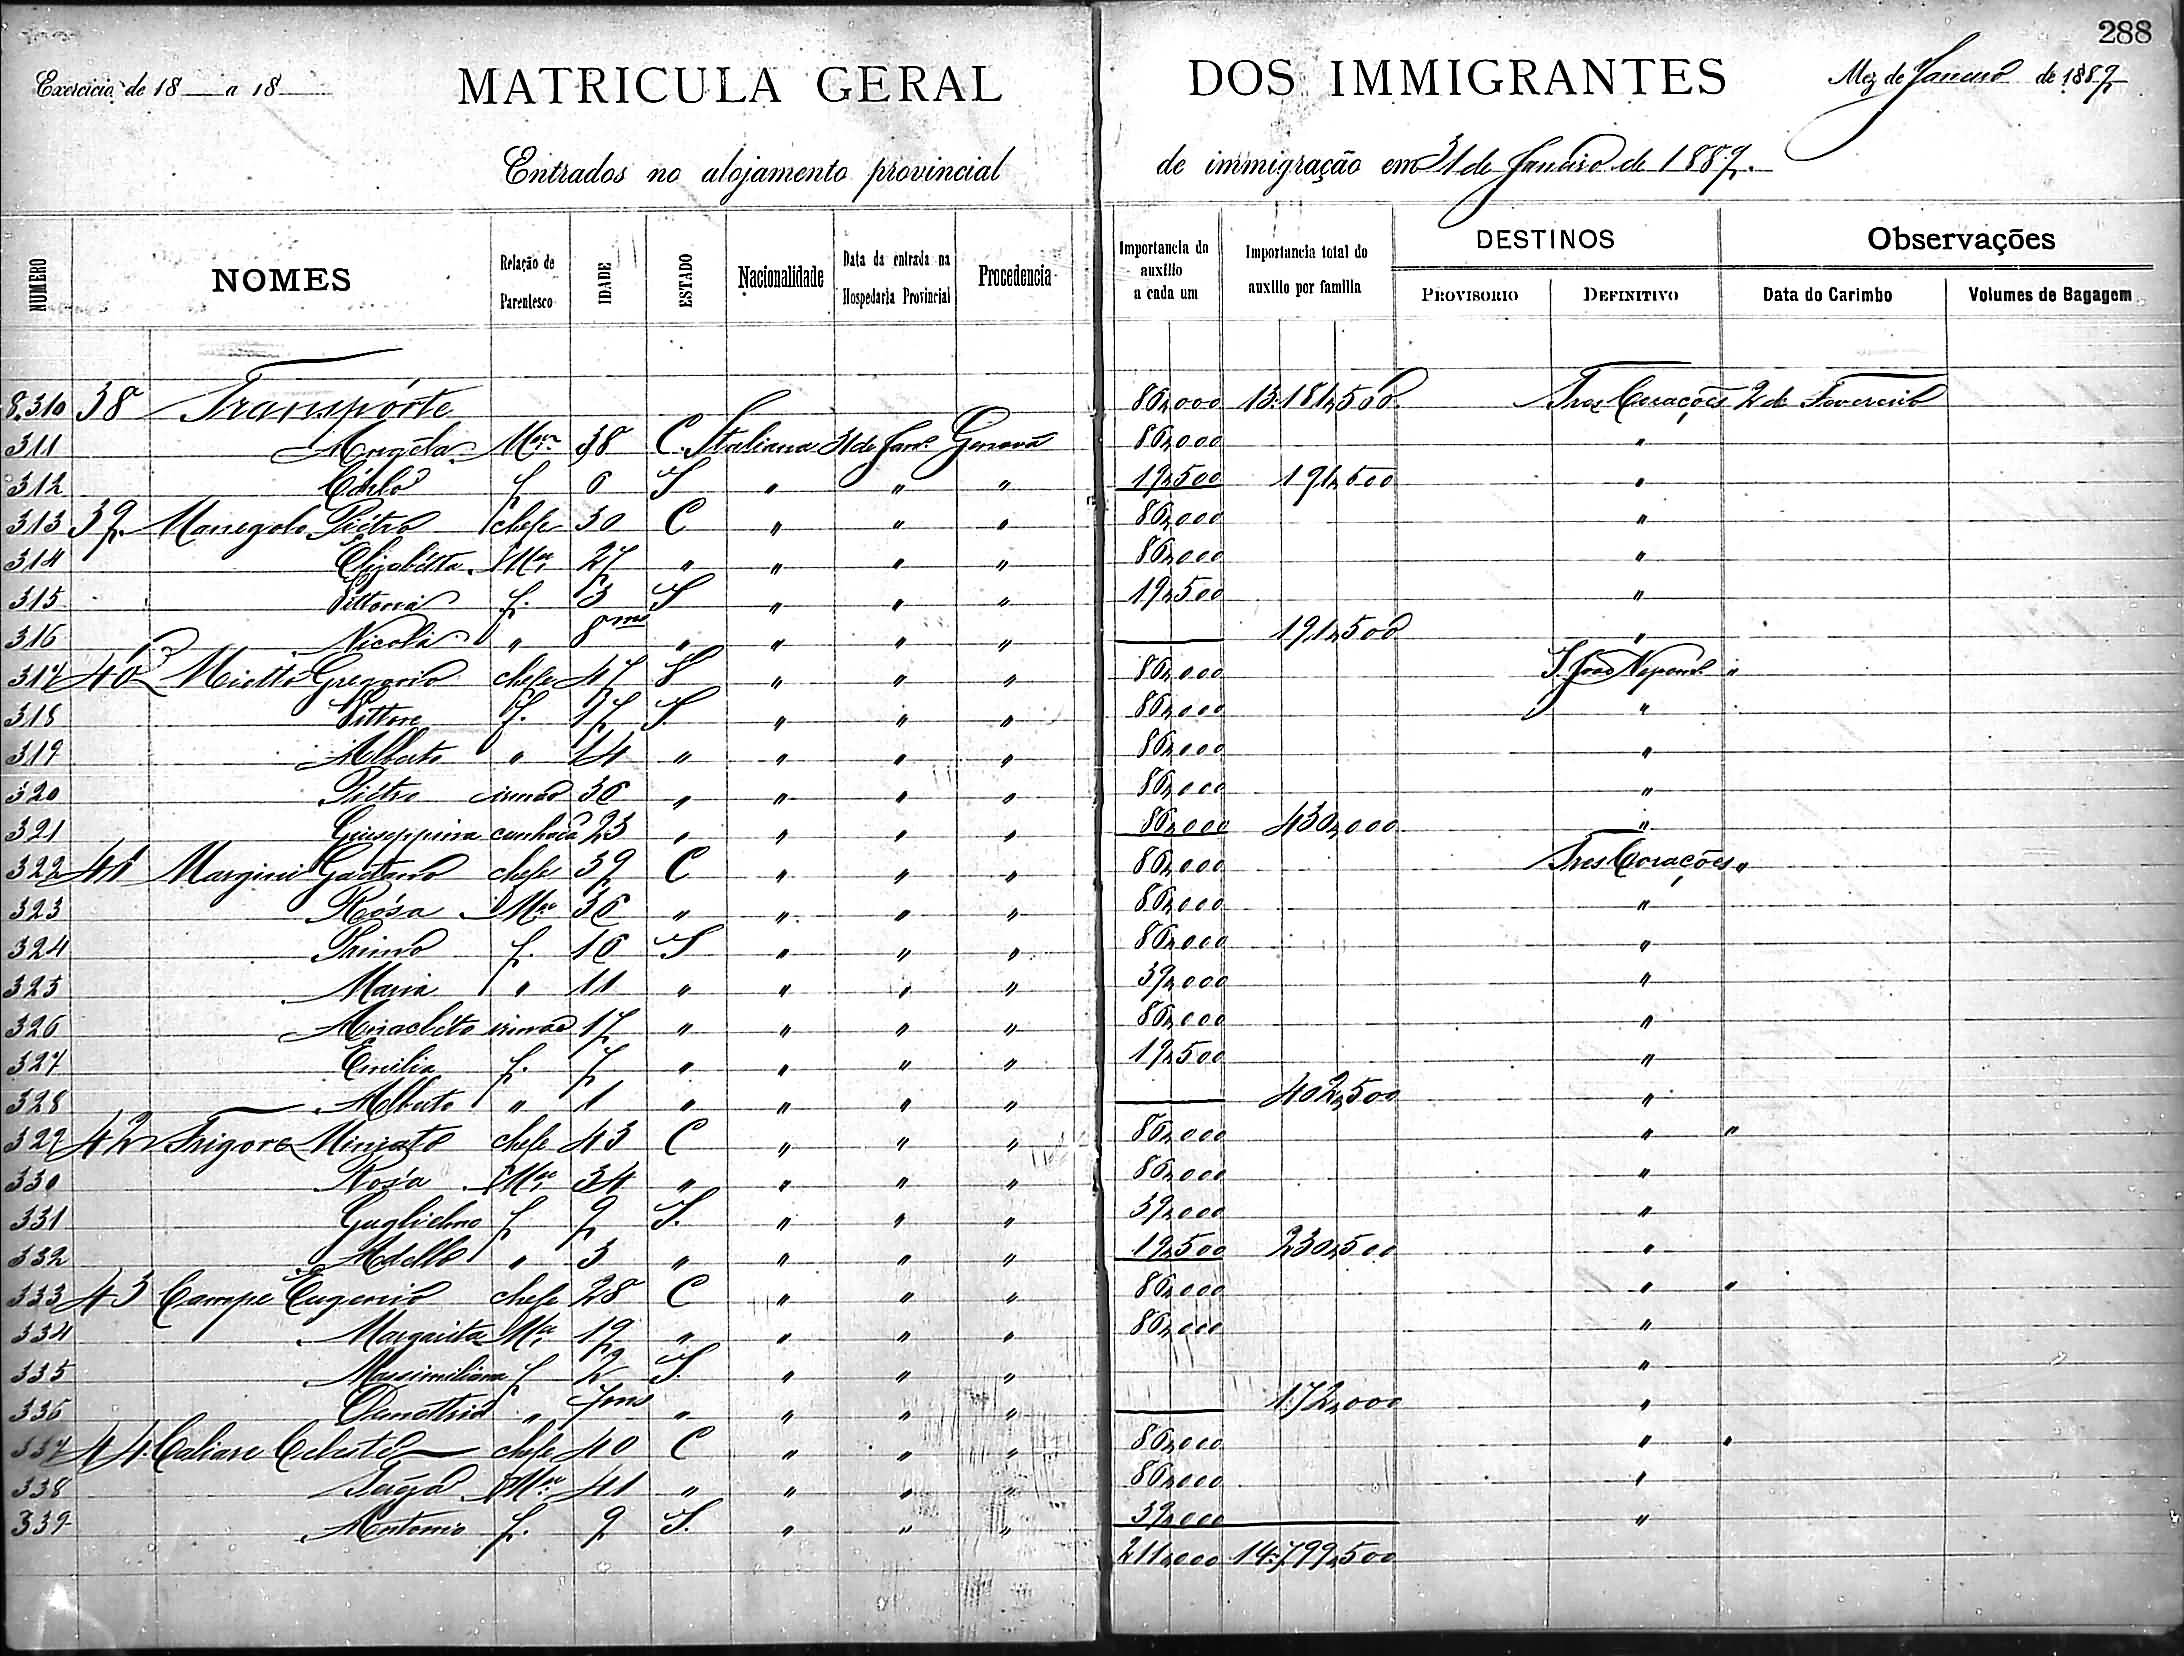 288
Exercicio de 18 a 18
MATRICULA GERAL DOS IMMIGRANTES
Mez de Janeiro de 1889
Entrados no alojamento provincial de immigração em 31 de Janeiro de 1889.
NUMERO NOMES Relação de Parentesco IDADE ESTADO Nacionalidade Data da entrada na Hospedaria Provincial Procedencia Importancia do auxilio a cada um Importancia total do auxilio por familia DESTINOS Observações
PROVISORIO DEFINITIVO Data do Carimbo Volumes de Bagagem
8.310 38 Transpórte 86,000 13:181,500 Tres Corações 2 de Fevereiro
311 Angela Mer 38 C. Italiana 31 de Janº Genova 86,000 "
312 Carlo f 6 S " " " 19,500 191,500 "
313 39 Manegolo Pietro chefe 30 C " " " 86,000 "
314 Elizabetta Mer 27 " " " " 86,000 "
315 Vittoria f. 3 S " " " 19,500 "
316 Nicola " 8 ms " " " " 191,500 "
317 40 Miotto Gregorio chefe 47 " " " 86,000 S. João Nepom. "
318 Vittore f. 17 S. " " " 86,000 "
319 Alberto " 14 " " " " 86,000 "
320 Pietro irmão 36 " " " " 86,000 "
321 Giuseppina cunhada 23 " " " " 86,000 430,000 "
322 41 Margini Gaetano chefe 39 C " " " 86,000 Tres Corações "
323 Rosa Mer 36 " " " " 86,000 "
324 Primo f. 16 S " " " 86,000 "
325 Maria " 11 " " " " 39,000 "
326 irmão 17 " " " " 86,000 "
327 Emilia f. 7 " " " " 19,500 "
328 Alberto " 1 " " " " 402,500 "
329 42 Frigore Miniato chefe 43 C " " " 86,000 " "
330 Rosa Mer 34 " " " " 86,000 "
331 Guglielmo f 9 S. " " " 39,000 "
332 Adello " 3 " " " " 19,500 230,500 "
333 43 Campe Eugenio chefe 28 C " " " 86,000 " "
334 Margarita Mer 19 " " " " 86,000 "
335 Massimiliana f 2 S. " " " "
336 " 7 ms " " " " 172,000 "
337 44 Caliare Celeste chefe 40 C " " " 86,000 " "
338 Mer 41 " " " " 86,000 "
339 Antonio f. 9 S. " " " 39,000 "
211,000 14:799,500